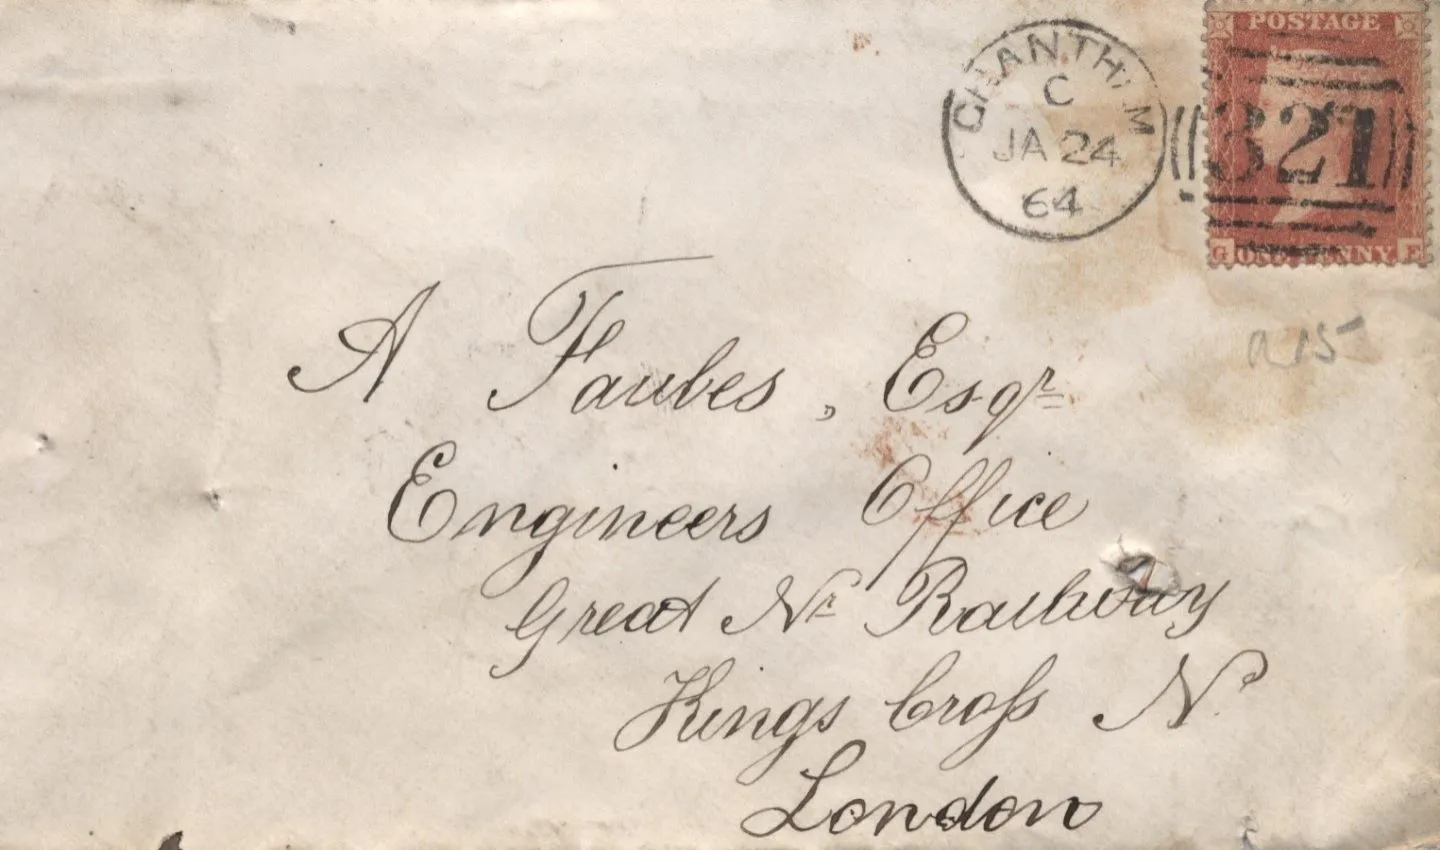 POSTAGE
GRANTHAM
C
JA 24
64
321
G ONE PENNY E
A Faubes, Esqr
Engineers Office
Great Nr Railway
Kings Cross N
London